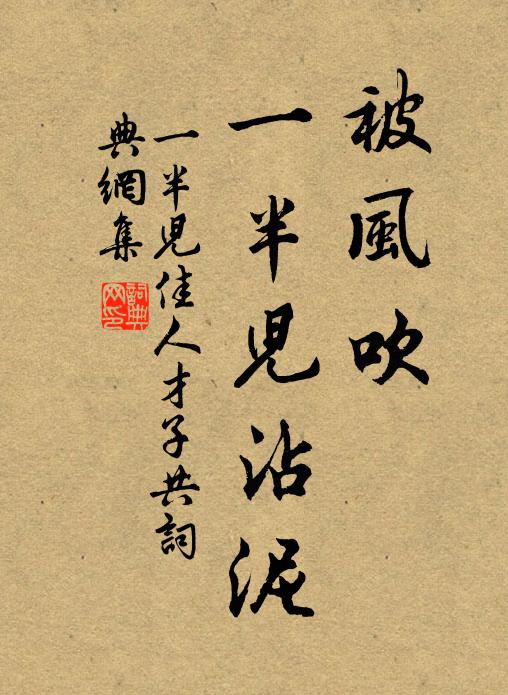 被風吹
一半兒沾泥
一半兒佳人才子共詞
典網集
詞典网印